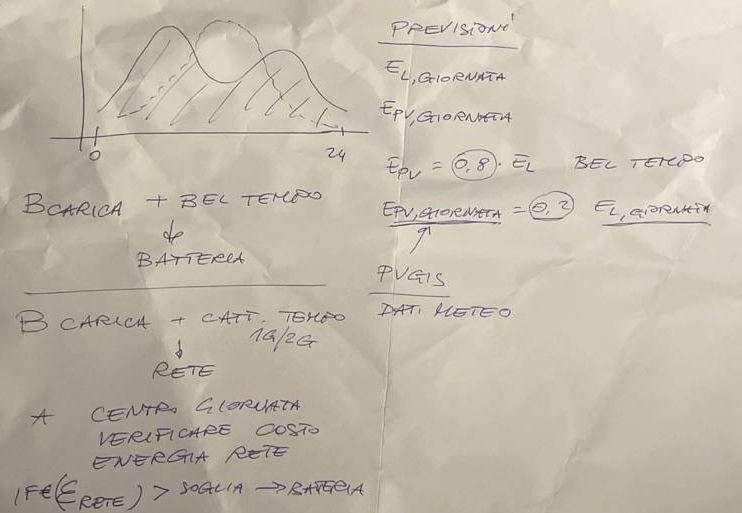 0 24
B CARICA + BEL TEMPO
BATTERIA
B CARICA + CATT. TEMPO
1G/2G
RETE
A CENTRO GIORNATA
VERIFICARE COSTO
ENERGIA RETE
IF €(E_RETE) > SOGLIA → BATTERIA
PREVISIONI
E_L,GIORNATA
E_PV,GIORNATA
E_PV = 0,8 · E_L BEL TEMPO
E_PV,GIORNATA = 0,2 E_L,GIORNATA
PVGIS
DATI METEO